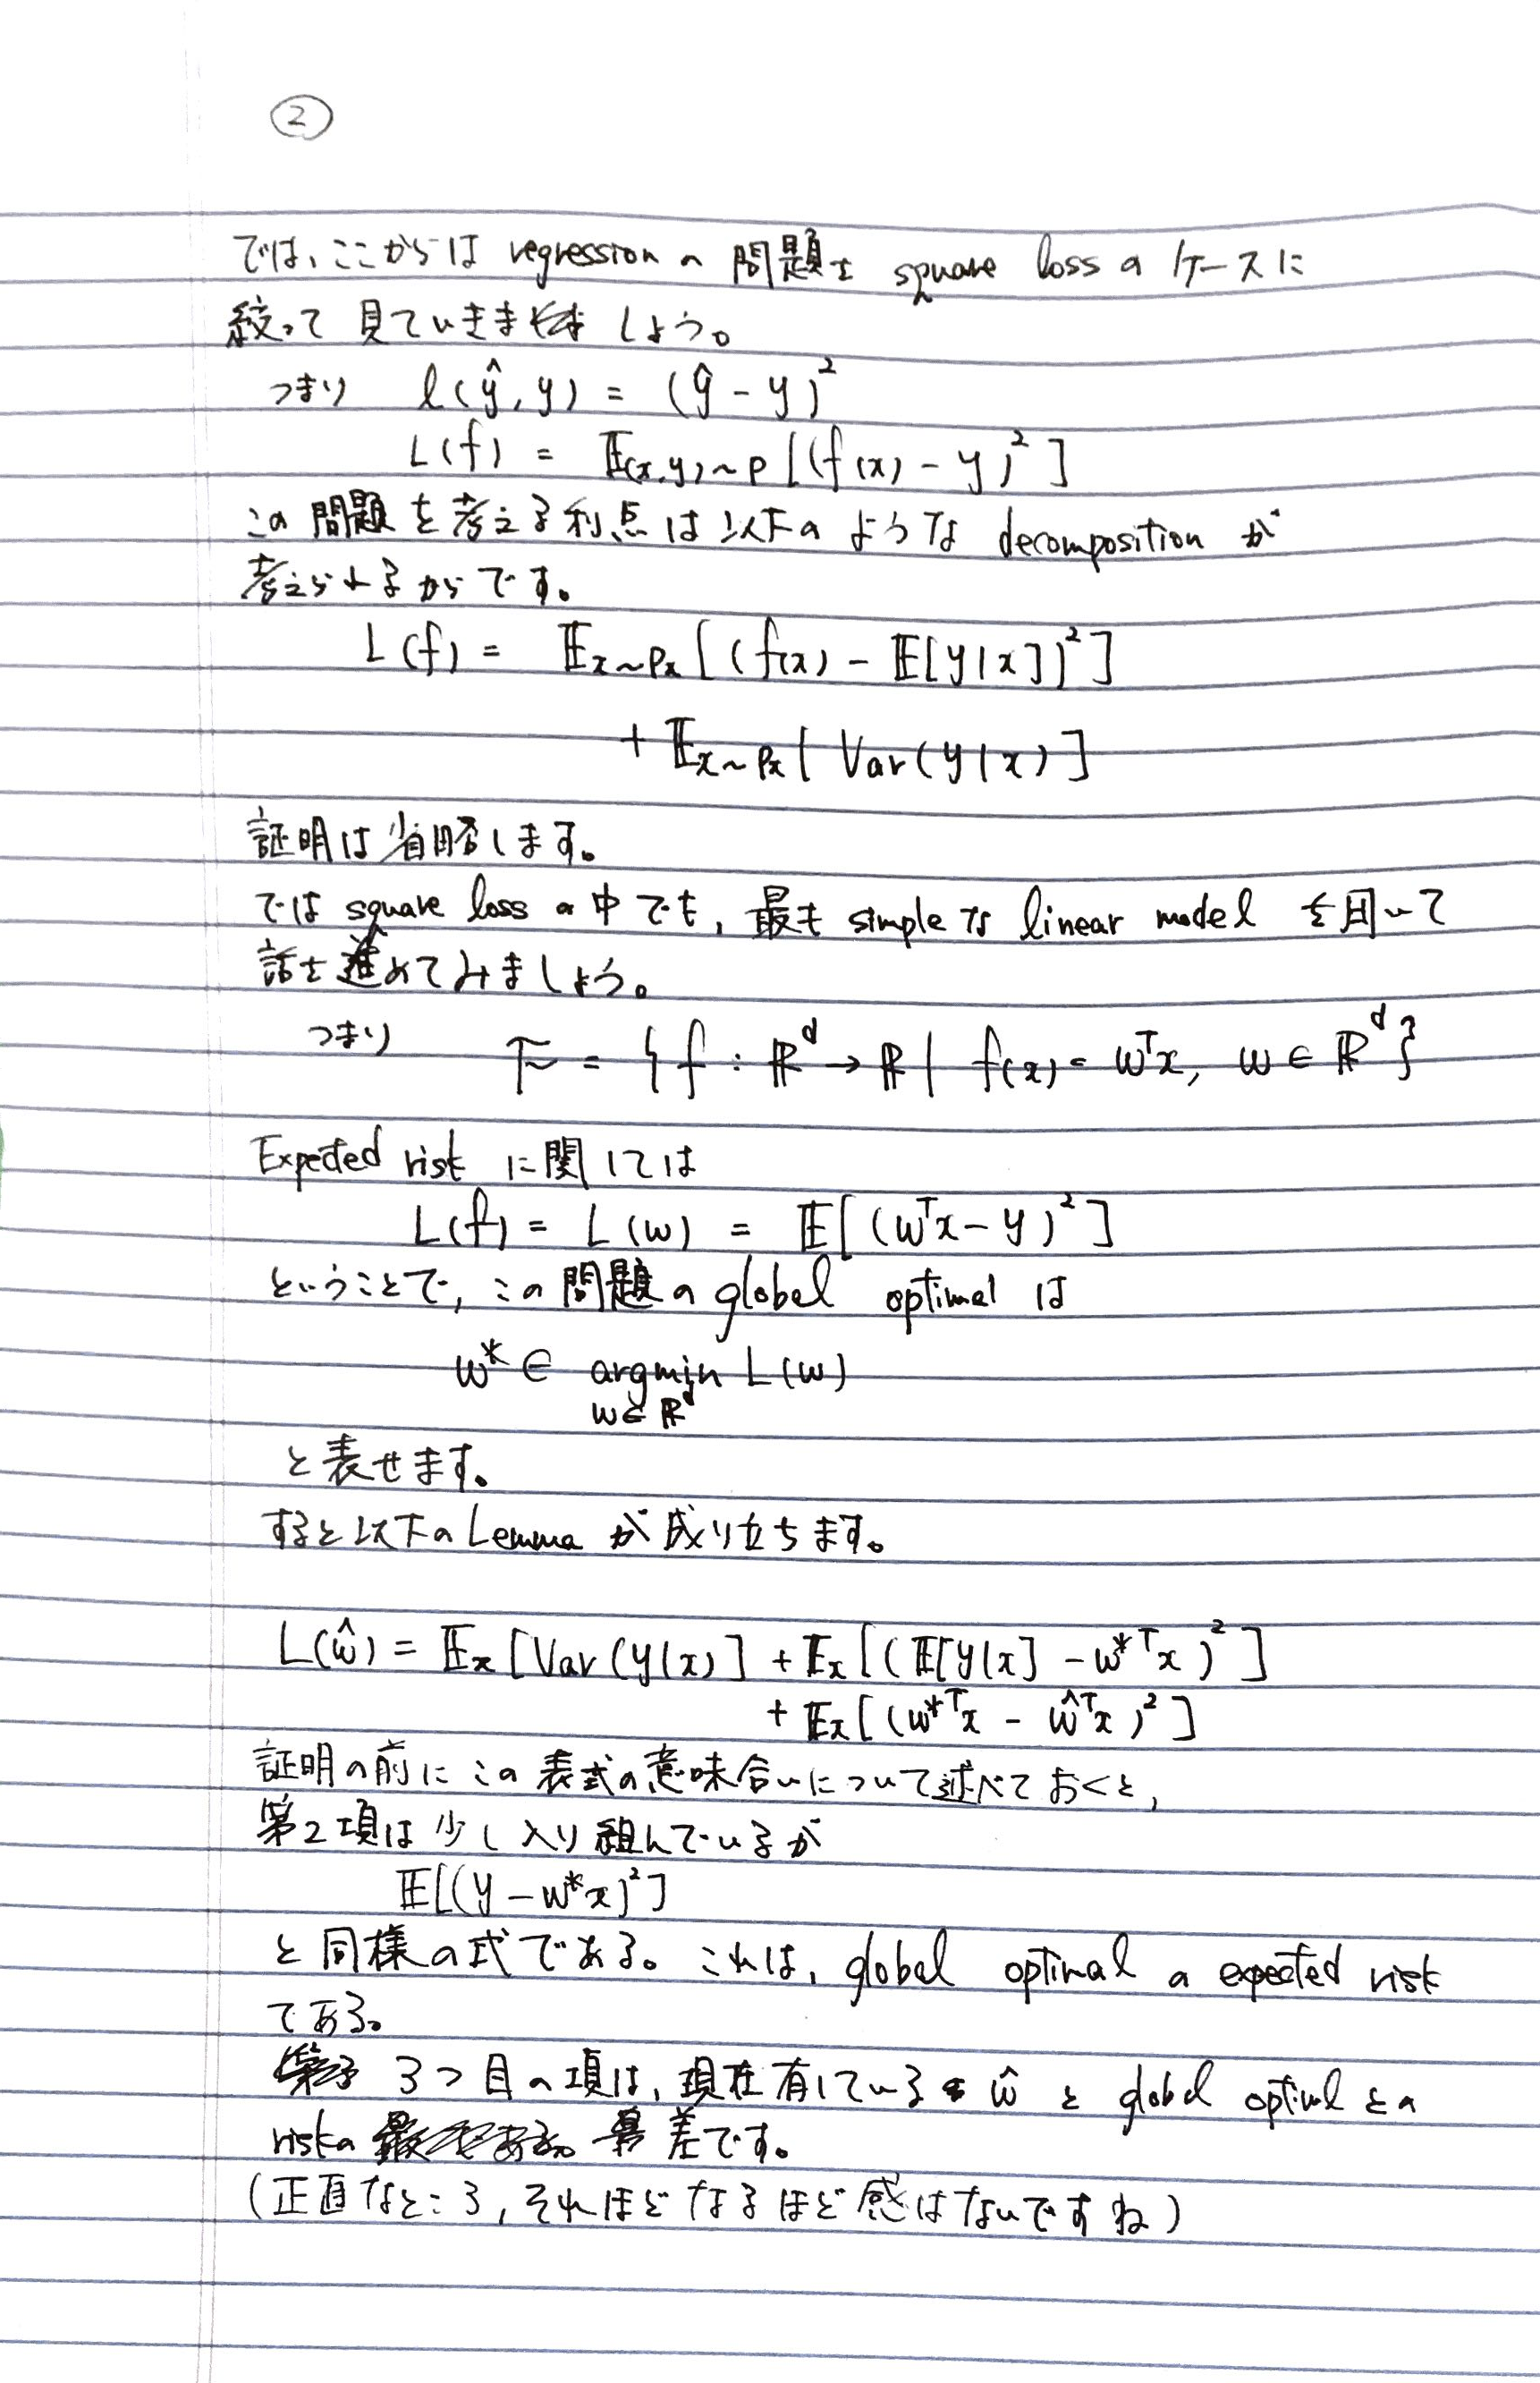 ②
では、ここからは regression の 問題を square loss の ケースに
絞って 見ていきましょう。
つまり l(ŷ, y) = (ŷ - y)²
L(f) = 𝔼(x,y)~P [(f(x) - y)²]
この 問題 を 考える 利点 は 以下の ような decomposition が
考えられるからです。
L(f) = 𝔼x~Px [(f(x) - 𝔼[y|x])²]
+ 𝔼x~Px [Var(y|x)]
証明は省略します。
では square loss の 中 でも, 最も simple な linear model を用いて
話を進めてみましょう。
つまり F = {f : ℝᵈ → ℝ | f(x) = wᵀx, w ∈ ℝᵈ}
Expected risk に関しては
L(f) = L(w) = 𝔼[(wᵀx - y)²]
ということで, この 問題の global optimal は
w* ∈ argmin L(w)
w∈ℝᵈ
と表せます。
すると以下の Lemma が 成り立ちます。
L(ŵ) = 𝔼x[Var(y|x)] + 𝔼x[(𝔼[y|x] - w*ᵀx)²]
+ 𝔼x[(w*ᵀx - ŵᵀx)²]
証明の前に この 表式の意味合いについて述べておくと,
第2項は少し入り組んでいるが
𝔼[(y - w*x)²]
と同様の式である。これは, global optimal の expected risk
である。
3つ目の項は, 現在有している ŵ と global optimal との
riskの 差です。
(正直なところ, それほどなるほど感はないですね)